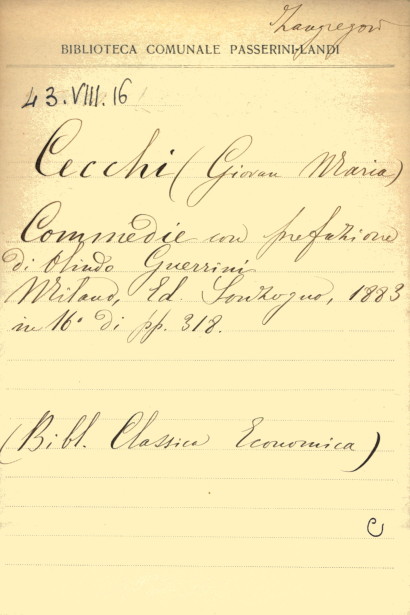 BIBLIOTECA COMUNALE PASSERINI-LANDI
43.VIII.16
Cecchi (Giovan Maria)
Commedie con prefazione
di Olindo Guerrini
Milano, Ed. Sonzogno, 1883
in 16° di pp. 318.
(Bibl. Classica Economica)
C